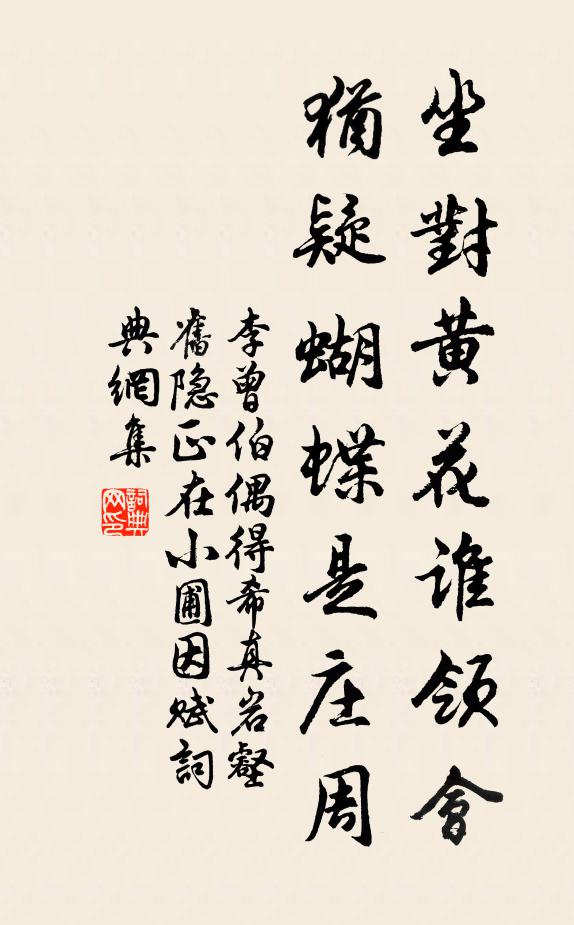 坐對黃花誰領會
猶疑蝴蝶是庄周
李曾伯偶得希真岩壑
舊隐正在小圃因赋詞
典網集
詞典网印